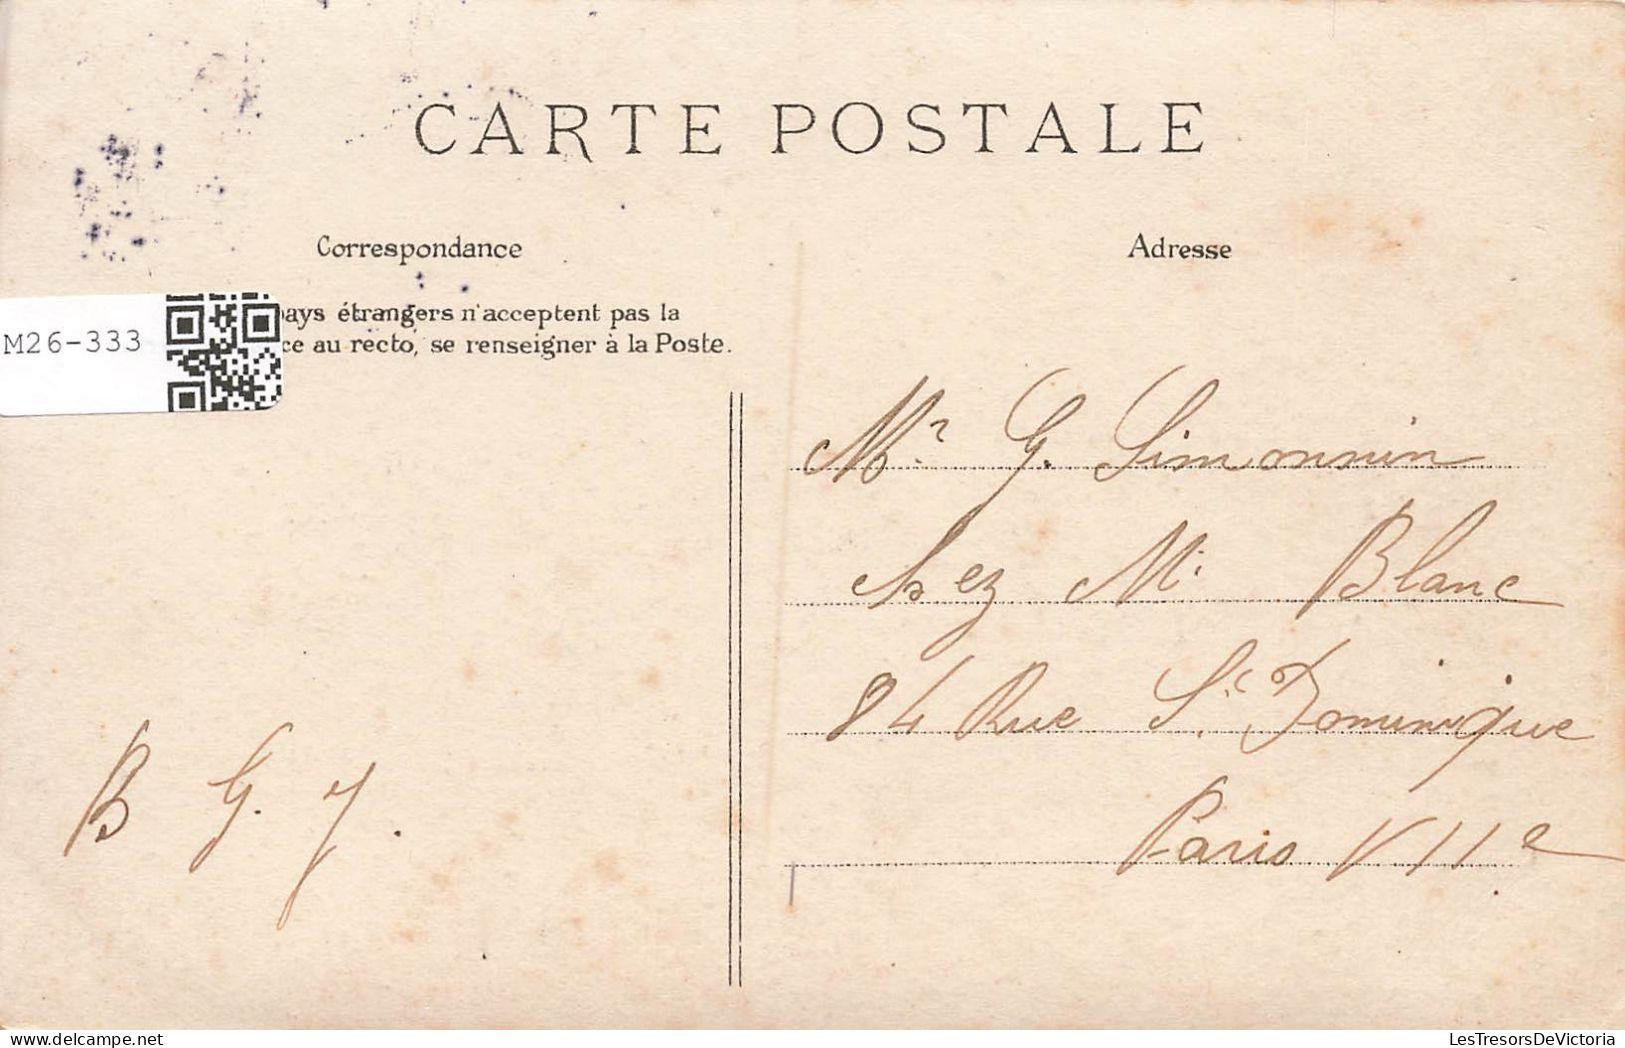 CARTE POSTALE
Correspondance
Adresse
M26-333
pays étrangers n'acceptent pas la
ce au recto, se renseigner à la Poste.
Mr G. Simonnin
chez M. Blanc
84 Rue St. Dominique
Paris VIIe
B G. J.
LesTresorsDeVictoria